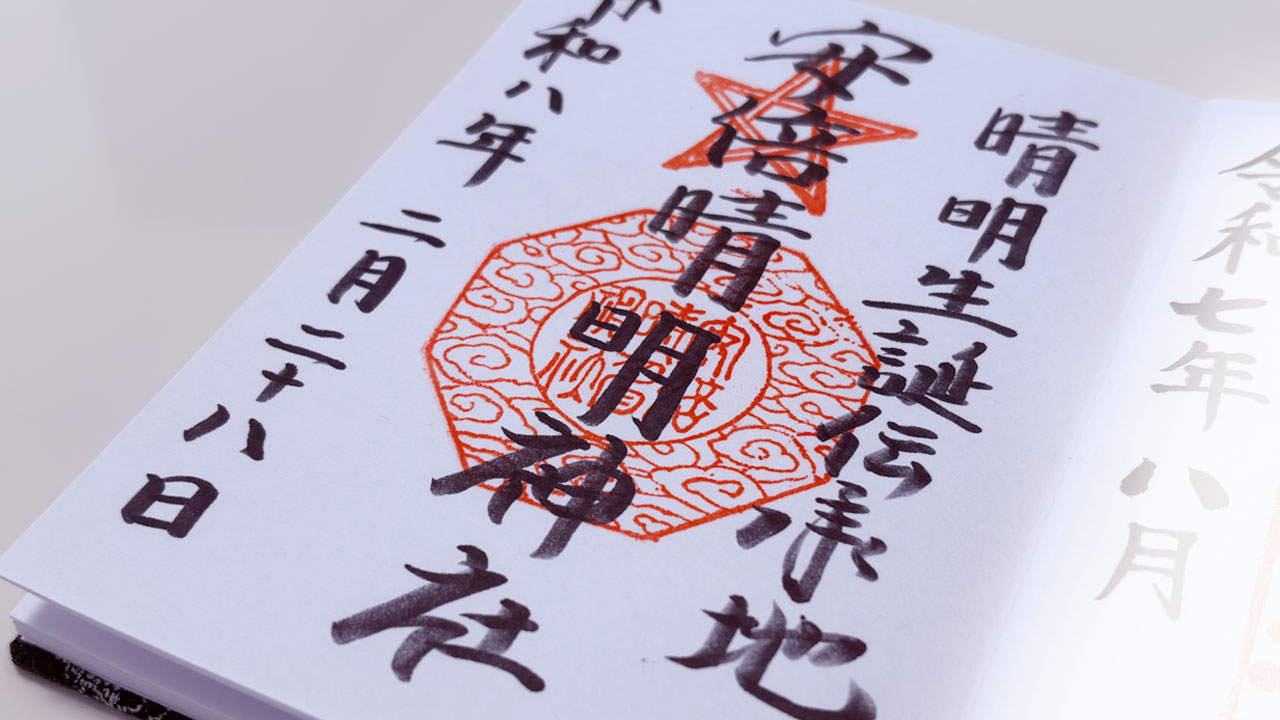 晴明生誕伝承地
安倍晴明神社
令和八年
二月二十八日
令和七年
八月